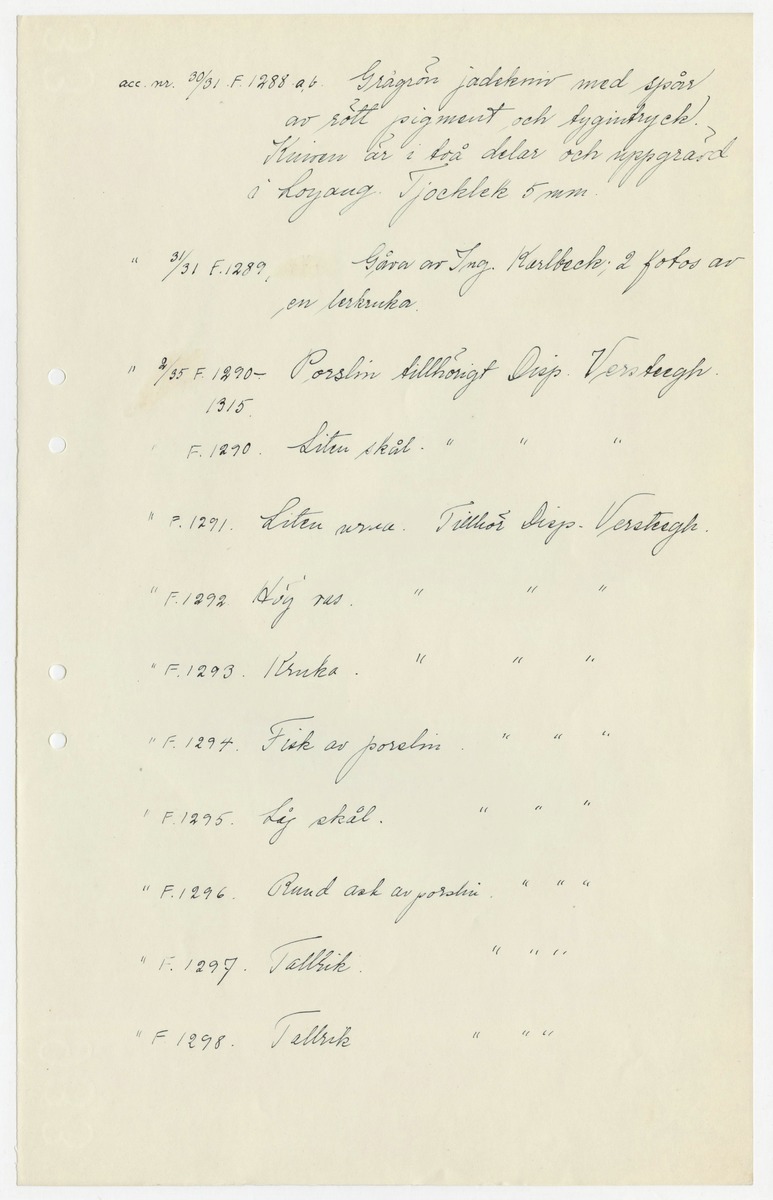 acc. nr. 30/31 F.1288 a,b. Grågrön jadekniv med spår
av rött pigment och tygintryck.
Kniven är i två delar och uppgrävd
i Loyang. Tjocklek 5 mm.
" 31/31 F.1289, Gåva av Ing. Karlbeck; 2 fotos av
en lerkruka.
" 2/35 F. 1290- Porslin tillhörigt Disp. Versteegh.
1315.
F. 1290. Liten skål. " " "
" F. 1291. Liten Tillhör Disp. Versteegh.
" F. 1292 Hög vas. " " "
" F. 1293. Kruka. " " "
" F. 1294. Fisk av porslin. " " "
" F. 1295. Låg skål. " " "
" F. 1296. Rund ask av porslin. " " "
" F. 1297. Tallrik. " " "
" F 1298. Tallrik " " "